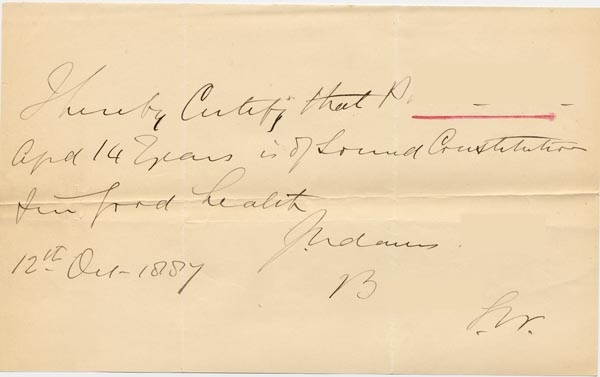 I hereby Certify that P.
aged 14 Years is of Sound Constitution
& in good health
J. Adams.
12th Oct - 1887
B
S.W.